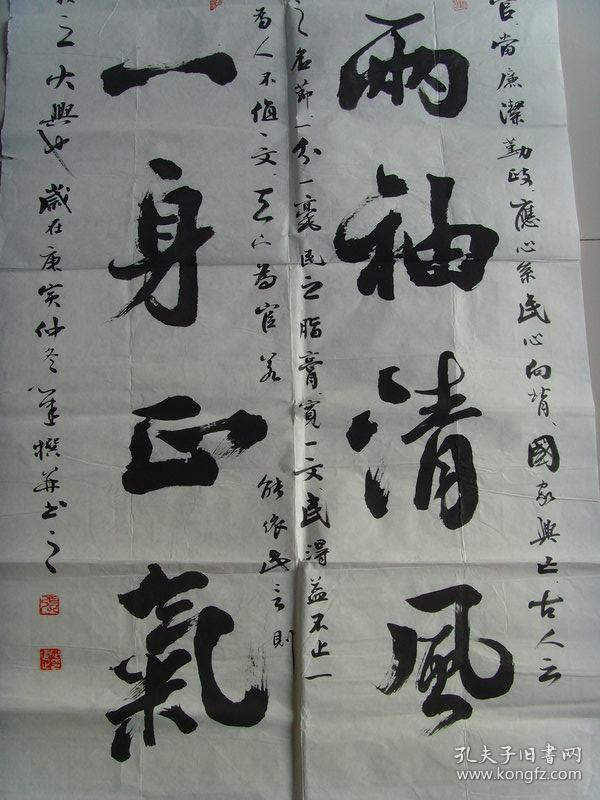 兩袖清風
一身正氣
官當廉潔勤政、應心系民心向背、國家興亡、古人云
之名節、一分一毫民之脂膏、寬一文、民得益不止一
為人不值一文、
為官若
能依此言則
之大興也
歲在庚寅仲冬
撰并书之
孔夫子旧书网
www.kongfz.com